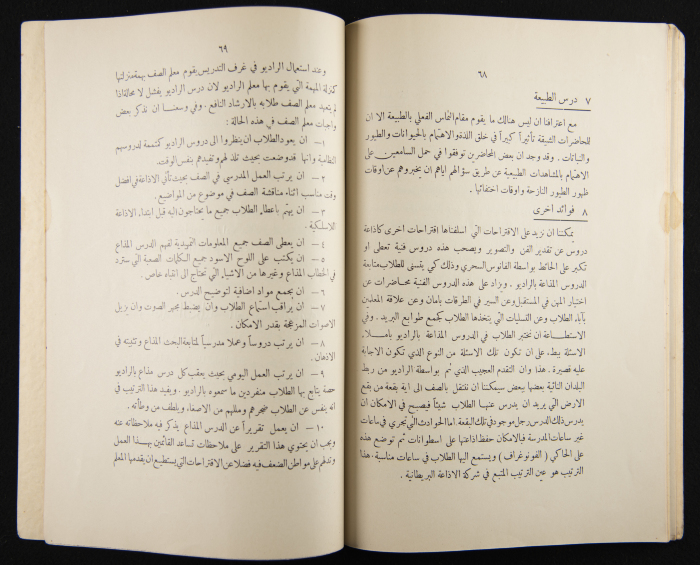 ٦٨
٧ درس الطبيعة
مع اعترافنا ان ليس هنالك ما يقوم مقام التماس الفعلي بالطبيعة الا ان
للمحاضرات الشيقة تأثيراً كبيراً في خلق اللذة والاهتمام بالحيوانات والطيور
والنباتات . وقد وجد ان بعض المحاضرين توفقوا في حمل السامعين على
الاهتمام بالمشاهدات الطبيعية عن طريق سؤالهم اياهم ان يخبروهم عن اوقات
ظهور الطيور النازحة واوقات اختفائها .
٨ فوائد اخرى
يمكننا ان نزيد على الاقتراحات التي اسلفناها اقتراحات اخرى كاذاعة
دروس عن تقدير الفن والتصوير ويصحب هذه دروس فنية تعطى او
تكبر على الحائط بواسطة الفانوس السحري وذلك كي يتسنى للطلاب متابعة
الدروس المذاعة بالراديو . ويزاد على هذه الدروس الفنية محاضرات عن
اختيار المهن في المستقبل وعن السير في الطرقات بامان وعن علاقة المعلمين
بآباء الطلاب وعن التسليات التي يتخذها الطلاب كجمع طوابع البريد . وفي
الاستطاعة ان نختبر الطلاب في الدروس المذاعة بالراديو باملاء
الاسئلة ببطء على ان تكون تلك الاسئلة من النوع الذي تكون الاجابة
عليه قصيرة . هذا وان التقدم العجيب الذي تم بواسطة الراديو من ربط
البلدان النائية بعضها ببعض سيمكننا ان ننتقل بالصف الى اية بقعة من بقع
الارض التي يريد ان يدرس عنها الطلاب شيئاً فيصبح في الامكان ان
يدرس ذلك الدرس رجل موجود في تلك البقعة . اما الحوادث التي تجري في ساعات
غير ساعات المدرسة فبالامكان حفظ اذاعتها على اسطوانات ثم توضع هذه
على الحاكي ( الفونوغراف ) ويستمع اليها الطلاب في ساعات مناسبة . هذا
الترتيب هو عين الترتيب المتبع في شركة الاذاعة البريطانية .
٦٩
وعند استعمال الراديو في غرف التدريس يقوم معلم الصف بمهمة منزلتها
كمنزلة المهمة التي يقوم بها معلم الراديو لان درس الراديو يفشل لا محالة اذا
لم يتعهد معلم الصف طلابه بالارشاد النافع . وفي وسعنا ان نذكر بعض
واجبات معلم الصف في هذه الحالة :
١ — ان يعود الطلاب ان ينظروا الى دروس الراديو كمتممة لدروسهم
النظامية وانها قد وضعت بحيث تلذ لهم وتفيدهم بنفس الوقت .
٢ — ان يرتب العمل المدرسي في الصف بحيث تأتي الاذاعة في افضل
وقت مناسب اثناء مناقشة الصف في موضوع من المواضيع .
٣ — ان يهتم باعطاء الطلاب جميع ما يحتاجون اليه قبل ابتداء الاذاعة
اللاسلكية .
٤ — ان يعطى الصف جميع المعلومات التمهيدية لفهم الدرس المذاع
٥ — ان يكتب على اللوح الاسود جميع الكلمات الصعبة التي سترد
في الخطاب المذاع وغيرها من الاشياء التي تحتاج الى انتباه خاص .
٦ — ان يجمع مواد اضافية لتوضيح الدرس .
٧ — ان يراقب استماع الطلاب وان يضبط مجهر الصوت وان يزيل
الاصوات المزعجة بقدر الامكان .
٨ — ان يرتب دروساً وعملا مدرسياً لمتابعة البحث المذاع وتثبيته في
الاذهان .
٩ — ان يرتب العمل اليومي بحيث يعقب كل درس مذاع بالراديو
حصة يتابع بها الطلاب منفردين ما سمعوه بالراديو . ويفيد هذا الترتيب في
انه ينفس عن الطلاب ضجرهم ومللهم من الاصغاء ويلطف من وطأته .
١٠ — ان يعمل تقريراً عن الدرس المذاع يذكر فيه ملاحظاته عنه
ويجب ان يحتوي هذا التقرير على ملاحظات تساعد القائمين بهذا العمل
وتدلهم على مواطن الضعف فيه فضلا عن الاقتراحات التي يستطيع ان يقدمها المعلم